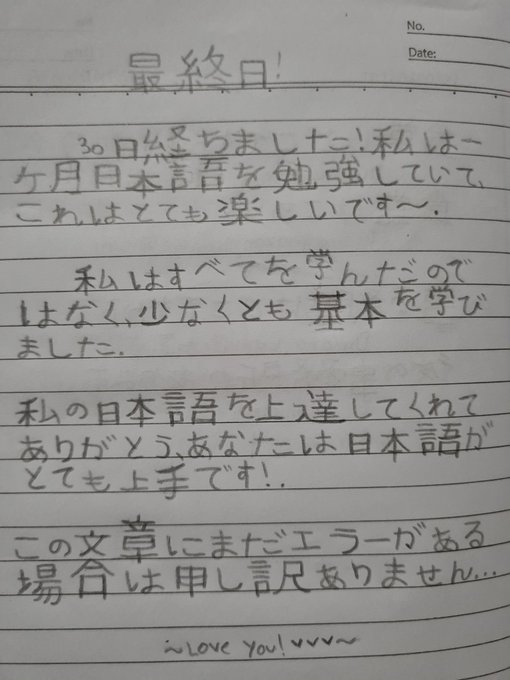 No.
Date:
最終日!
30日経ちました!私は一
ケ月日本語を勉強していて、
これはとても楽しいです〜.
私はすべてを学んだので
はなく、少なくとも基本を学び
ました.
私の日本語を上達してくれて
ありがとう、あなたは日本語が
とても上手です!.
この文章にまだエラーがある
場合は申し訳ありません...
~Love you! vvv~